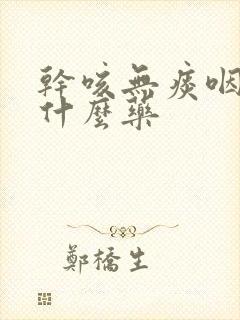 幹咳無痰咽
什麼藥
鄭橋生